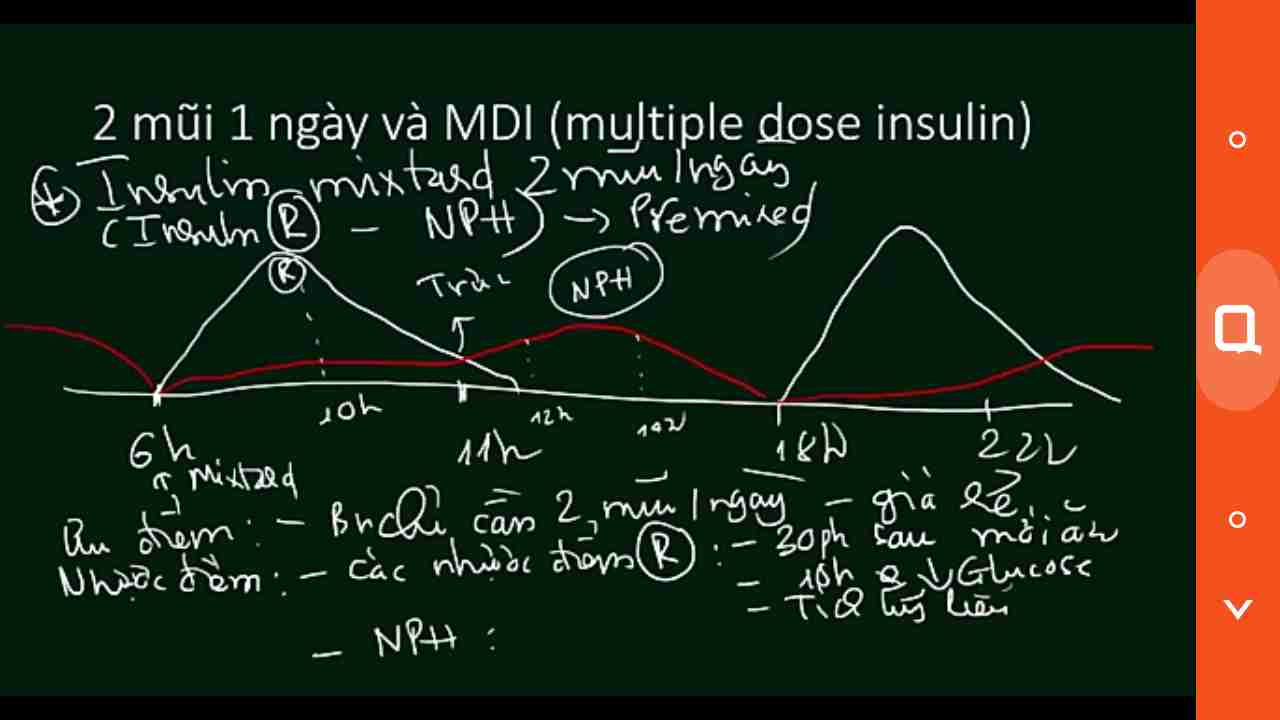 2 mũi 1 ngày và MDI (multiple dose insulin)
Insulin mixtard 2 mũi 1 ngay
(Insulin R - NPH) → Premixed
R
NPH
10h 12h
6h 11h 18h 22h
↑ Mixtard
Ưu điểm: - Bn chỉ cần 2 mũi 1 ngay - giá rẻ
Nhược điểm: - các nhược điểm R : - 30ph sau mới ăn
- 10h ↓ Glucose
-
- NPH :